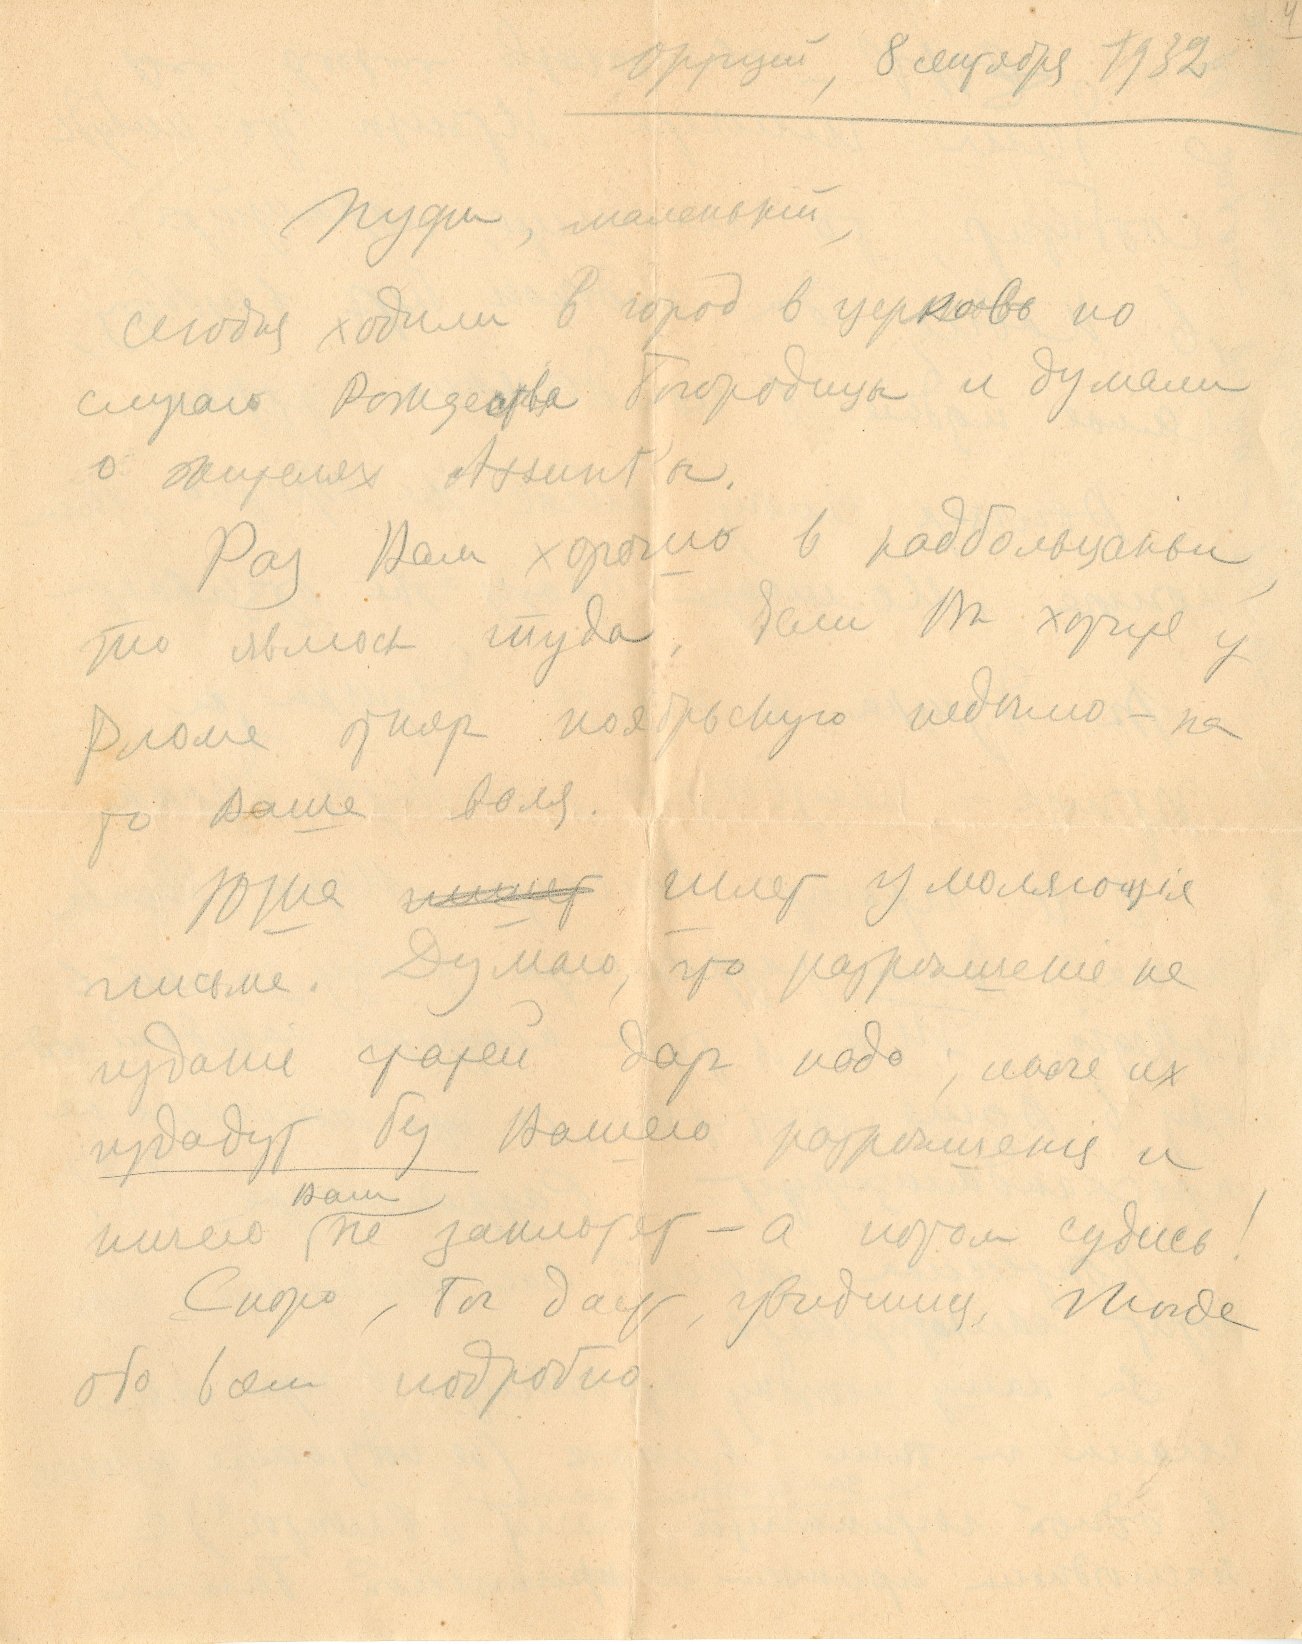 8 сентября 1932
маленькій,
сегодня ходили в город в церковь по
случаю Рождества Богородицы и думали
о жителях
Раз Вам хорошо в
то явлюсь туда, Если Вы хотите у
ноябрьскую недѣлю — на
то Ваша воля.
шлет умоляющія
письма. Думаю, что разрѣшеніе на
изданіе статей дать надо, иначе их
издадут без Вашего разрѣшенія и
ничего Вам не заплотят — а потом судись!
Скоро, Бог даст, увидимся, тогда
обо всем подробно.